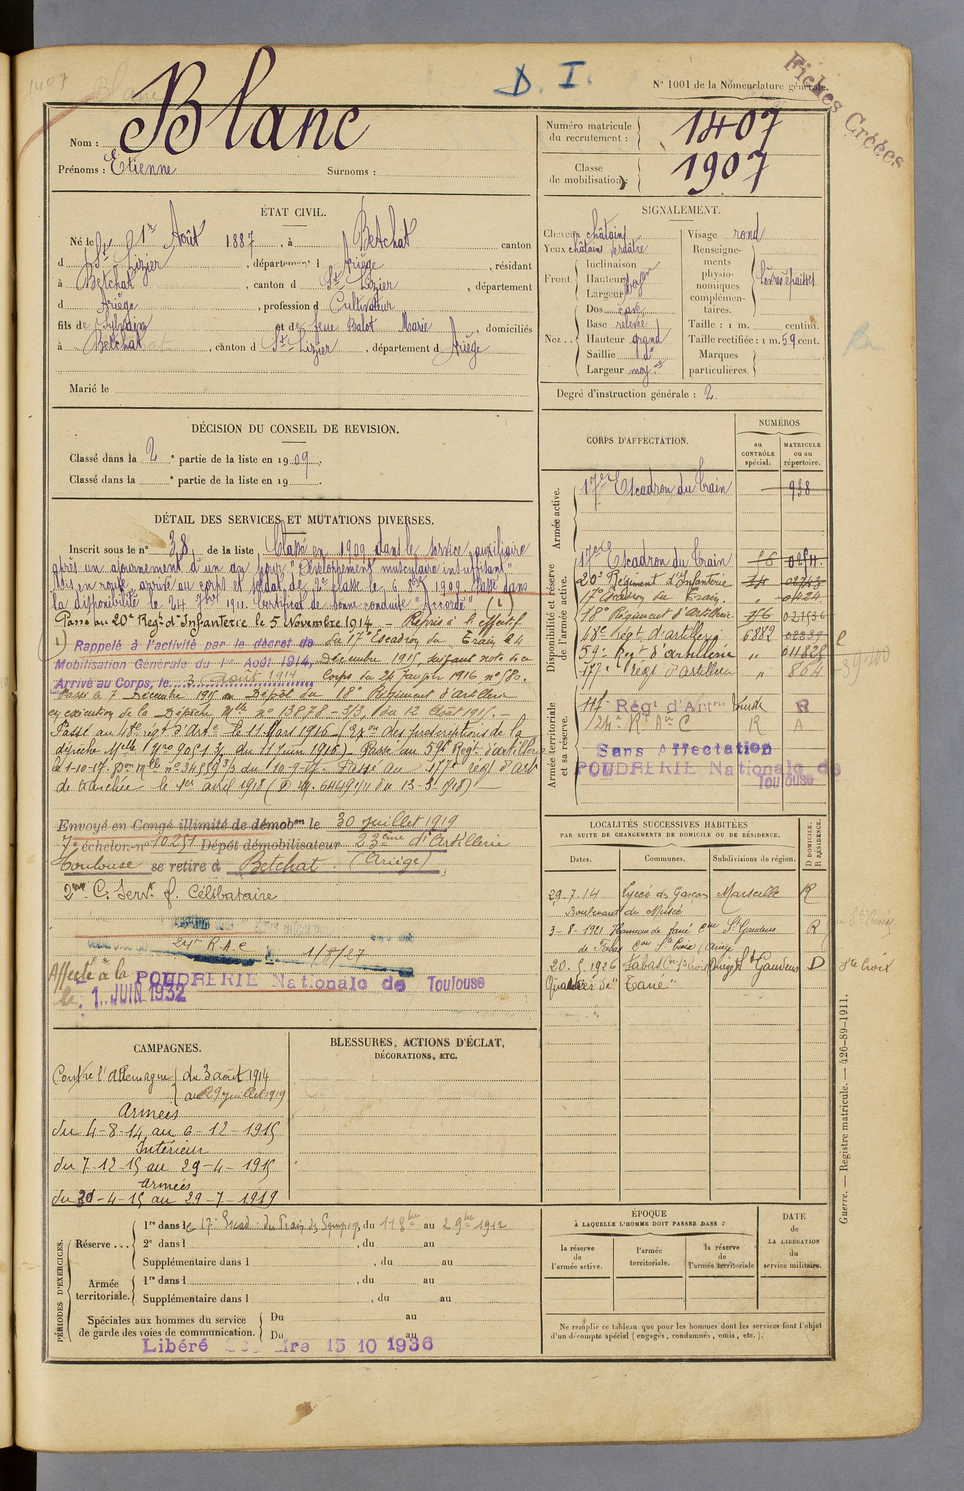 D. I.
N° 1001 de la Nomenclature générale.
Fiches Créées
Nom : Blanc
Prénoms : Etienne Surnoms :
Numéro matricule du recrutement : 1407
Classe de mobilisation : 1907
ÉTAT CIVIL.
Né le 1er Août 1887, à Betchat canton
d St Lizier, département d Ariège, résidant
à Betchat, canton d St Lizier, département
d Ariège, profession d Cultivateur
fils de Sylvain et de feue Balot Marie, domiciliés
à Betchat, canton d St Lizier, département d Ariège
Marié le
SIGNALEMENT.
Cheveux châtains
Yeux châtains verdâtre
Front. Inclinaison
Hauteur
Largeur moyen
Nez.. Dos cave
Base relevée
Hauteur grand
Saillie do
Largeur moy
Visage rond
Renseignements physionomiques complémentaires. lèvres épaisses
Taille : 1 m. centim.
Taille rectifiée : 1 m. 59 cent.
Marques particulières.
Degré d'instruction générale : 2
DÉCISION DU CONSEIL DE REVISION.
Classé dans la 2e partie de la liste en 1909.
Classé dans la e partie de la liste en 19
DÉTAIL DES SERVICES ET MUTATIONS DIVERSES.
Inscrit sous le n° 38 de la liste Classé en 1909 dans le service auxiliaire
après un ajournement d'un an pour "Développement musculaire insuffisant"
Mis en route, arrivé au corps et soldat de 2e classe le 6 1909. Passé dans
la disponibilité le 24 7bre 1911. Certificat de bonne conduite "Accordé"
Passé au 20e Regt d'Infanterie le 5 Novembre 1914. Repris à l'effectif
Rappelé à l'activité par le décret de du 17e Escadron du Train le 4
Mobilisation Générale du 1er Août 1914, Décembre 1915, suivant note du
Arrivé au Corps, le 3 Août 1914 Corps du 24 Janvier 1916, n° 580.
Passé le 7 Décembre 1915 au Dépôt du 18e Régiment d'artillerie
en exécution de la Dépêche Mlle n° 13878-3/3, du 12 Août 1915.
Passé au 48e régt d'Artie le 11 Mars 1916 des prescriptions de la
dépêche Mlle du 11 juin 1915) Passé au 59e Regt d'artillerie
le 1-10-17. Don Mlle n° 34559 3/3 du 10-9-17. Passé au 177e régt d'Art
de tranchée le 1er avril 1918 du 13-3-1918)
Envoyé en Congé illimité de démobon le 30 juillet 1919
7e échelon n° 10.251 Dépôt démobilisateur 23ème d'Artillerie
Toulouse se retire à Betchat (Ariège)
Célibataire
24e R.A.C 1/8/27
Affecté à la POUDRERIE Nationale de Toulouse
le 1 JUIN 1932
CORPS D'AFFECTATION.
NUMÉROS
au CONTRÔLE spécial.
MATRICULE ou au répertoire.
Armée active.
17e Escadron du Train 938
Disponibilité et réserve de l'armée active.
17e Escadron du Train
20e Régiment d'Infanterie
17e Escadron du Train 0424
18e Régiment d'Artillerie
48e Régt d'artillerie 6882
59e Regt d'artillerie " 011828
177e régt d'artillerie " 864
Armée territoriale et sa réserve.
117e Régt d'Artie lourde R
24e R.A.C R A
Sans Affectation
POUDRERIE Nationale de Toulouse
LOCALITÉS SUCCESSIVES HABITÉES
PAR SUITE DE CHANGEMENTS DE DOMICILE OU DE RÉSIDENCE.
Dates. Communes. Subdivisions de région. D DOMICILE. R RÉSIDENCE.
29.7.14 Lycée de Garçons Marseille R
Boulevard du Musée
3-8-1921 Hameau de Tané cne St Gaudens R
de Fabas con Ste Croix (Ariège
20.5.1926 Fabas St Gaudens D
Quartier de "Tané"
Ste Croix
CAMPAGNES.
Contre l'Allemagne du 3 août 1914
au 29 juillet 1919
Armées
du 4-8-14 au 6-12-1915
Intérieur
du 7-12-15 au 29-4-1915
Armées
du 30-4-15 au 29-7-1919
BLESSURES, ACTIONS D'ÉCLAT, DÉCORATIONS, ETC.
PÉRIODES D'EXERCICES.
Réserve... 1re dans le 17e Escad. du Train des Equipages, du 11 8bre au 29 8bre 1912
2e dans l , du au
Supplémentaire dans l , du au
Armée territoriale. 1re dans l , du au
Supplémentaire dans l , du au
Spéciales aux hommes du service de garde des voies de communication. Du au
Du au
Libéré 15 10 1936
ÉPOQUE
À LAQUELLE L'HOMME DOIT PASSER DANS :
la réserve de l'armée active.
l'armée territoriale.
la réserve de l'armée territoriale
DATE de LA LIBÉRATION du service militaire.
Ne remplir ce tableau que pour les hommes dont les services font l'objet
d'un décompte spécial (engagés, condamnés, omis, etc.).
Guerre. — Registre matricule. — 426-89-1911.